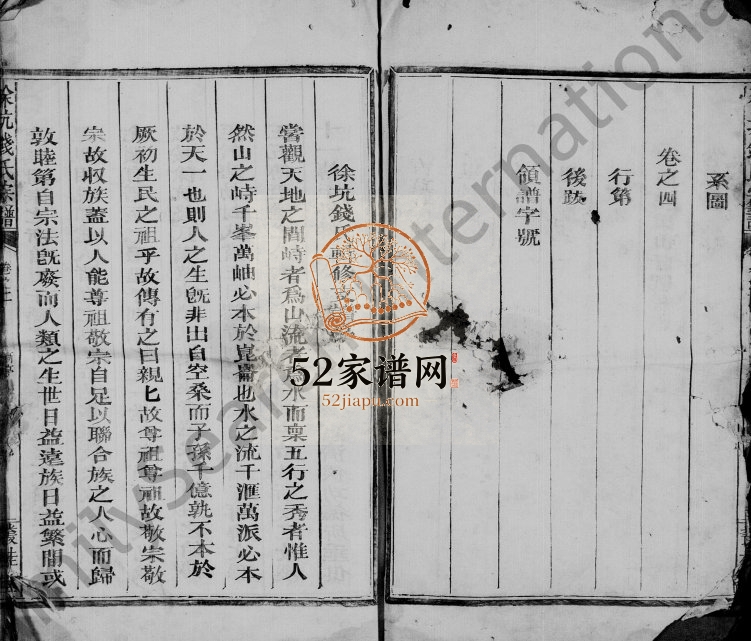 系圖
卷之四
行第
後跋
領譜字號
徐坑錢氏
嘗觀天地之間峙者為山流者為水而稟五行之秀者惟人
然山之峙千峯萬岫必本於崑崙也水之流千滙萬派必本
於天一也則人之生旣非出自空桑而子孫千億孰不本於
厥初生民之祖乎故傳有之曰親匕故尊祖尊祖故敬宗敬
宗故収族蓋以人能尊祖敬宗自足以聯合族之人心而歸
敦睦第自宗法旣廢而人類之生世日益遠族日益繁間或
徐坑錢氏宗譜
52家谱网
52jiapu.com